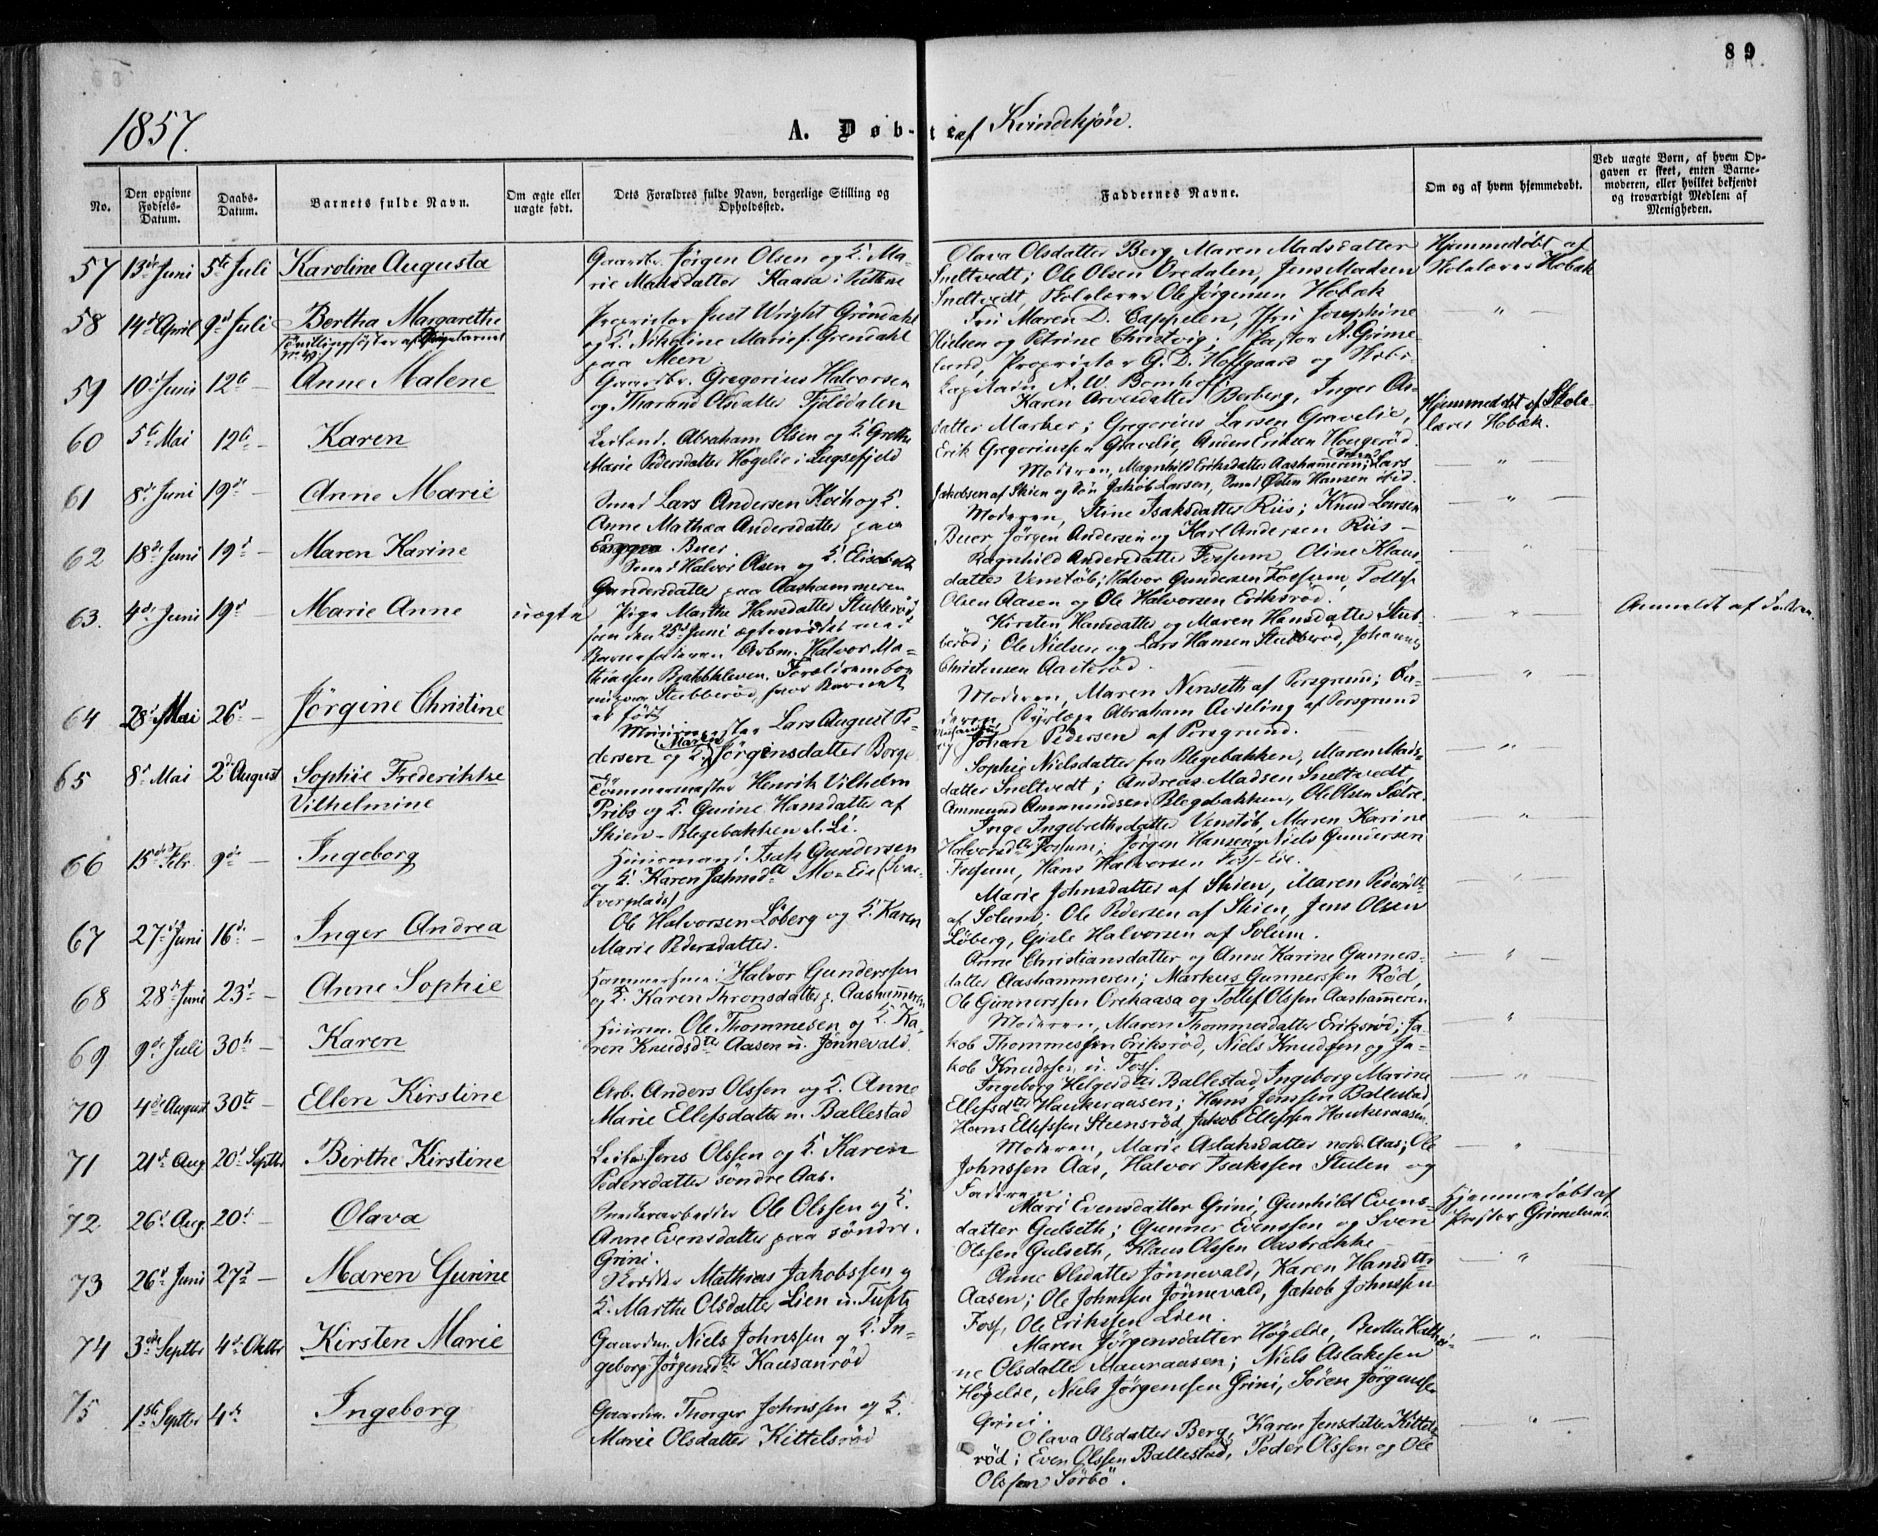 89
1857.
A. Døbte af Kvindekjøn.
No.
Den opgivne Fødsels-Datum.
Daabs-Datum.
Barnets fulde Navn.
Om ægte eller uægte født.
Dets Forældres fulde Navn, borgerlige Stilling og Opholdssted.
Faddernes Navne.
Om og af hvem hjemmedøbt.
Ved uægte Børn, af hvem Opgaven er skeet, enten Barnemoderen, eller hvilket bekjendt og troværdigt Medlem af Menigheden.
57 13de Juni 5te Juli Karoline Augusta
Gaardbr. Jørgen Olsen og K. Ma-
rie Madsdatter Kaasa i
Olava Olsdatter Berg, Maren Madsdatter
Sneltvedt; Ole Olsen Vredalen, Jens Madsen
Sneltvedt, Skolelærer Ole Jørgensen Hobæk
Hjemmedøbt af
Skolelærer Hobæk
58 14d April 9d Juli Bertha Margarethe
Tvillingsøster af
Nr. 49
Proprietær Just Wright Grøndahl
og K. Nikoline Marie f. Grøndahl
paa Meen
Fru Maren D. Cappelen, Fru Josephine
Nielsen og Petrine Christvig; Pastor A. Grime-
lund, Proprietær G. D. Hoffgaard og Skibs-
kapitain A. W. Bomhoff
"
59 10d Juni 12te — Anne Malene
Gaardbr. Gregorius Halvorsen
og Tharand Olsdatter Fjelddalen
Karen Arvesdatter Berberg, Inger Ols-
datter Marker; Gregorius Larsen Gravelie,
Erik Gregoriusen Gravelie, Anders Eriksen Hougerød
Hjemmedøbt af Skole-
lærer Hobæk.
60 5te Mai 12te — Karen
Leilend. Abraham Olsen og K. Grethe
Marie Pedersdatter Høgelie i Luksefjeld
Moderen, Magnhild Eriksdatter Aashammeren; Lars
Jakobsen af Skien og Søn Jakob Larsen, Smed Østen Hansen ibid.
"
61 8de Juni 19de — Anne Marie
Smed Lars Andersen Koih og K.
Anne Mathea Andersdatter paa
Buer.
Moderen, Stine Isaksdatter Riis; Knud Larsen
Buer, Jørgen Andersen og Karl Andersen Riis —
"
62 18d Juni 19d — Maren Karine
Smed Halvor Olsen og K. Elisabeth
Gundersdatter paa Aashammeren
Ragnhild Andersdatter Fossum, Oline Klaus-
datter Venstøb; Halvor Gundersen Fossum, Tollef
Olsen Aasen og Ole Halvorsen Eriksrød.
"
63. 4d Juni 19d — Marie Anne
uægte
Pige Marthe Hansdatter Stubberød
som den 25d Juni ægteviedes med
Barnefaderen Arbm. Halvor Ma-
thiasen Bakkekleven. Forældrene bo
nu paa Stubberød, hvor Barnet
er født
Kirsten Hansdatter og Maren Hansdatter Stub-
berød; Ole Nielsen og Lars Hansen Stubberød, Johannes
Christensen Aasterød.
"
Anmeldt af Faderen
64 28d Mai 26d — Jørgine Christine
Muurmester Lars August Pe-
dersen og K. Maren Jørgensdatter Borge
Moderen, Maren Nenseth af Porsgrund; Fa-
deren, Dyrlæge Abraham Aveling af Porsgrund
Johan Pedersen af Porsgrund.
"
65 8d Mai 2d August Sophie Frederikke
Vilhelmine
Tømmermester Henrik Vilhelm
Pribs og K. Gurine Hansdatter af
Skien - Blegebakken i Li.
Sophie Nielsdatter fra Blegebakken, Maren Mads-
datter Sneltvedt; Andreas Madsen Sneltvedt,
Ammund Ammundsen Blegebakken, Ole Olsen Sætre.
"
66 15d Febr. 9de — Ingeborg
Huusmand Isak Gundersen
og K. Karen Jahnsdtr Mo-Eie (Svar-
verplads)
Inge Ingebrethsdatter Venstøb, Maren Karine
Halvorsdtr Fossum; Jørgen Hansen, Niels Gundersen
Fossum, Hans Halvorsen Foss-Eie.
"
67 27d Juni 16d — Inger Andrea
Ole Halvorsen Løberg og K. Karen
Marie Pedersdatter.
Marie Johnsdatter af Skien, Maren Pedersdtr
af Solum; Ole Pedersen af Skien, Jens Olsen
Løberg, Gisle Halvorsen af Solum.
"
68 28d Juni 23d — Anne Sophie
Hammersmed Halvor Gunderssen
og K. Karen Thronsdatter p. Aashammeren
Anne Christiansdatter og Anne Karine Gunners-
datter Aashammeren; Markus Gunnerssen Rød,
Ole Gunnerssen Orekaasa og Tollef Olssen Aashammeren
"
69 9de Juli 30te — Karen
Huusm. Ole Thommesen og K. Ka-
ren Knudsdtr Aasen u. Jønnevald
Moderen, Maren Thommesdatter Eriksrød; Ja-
kob Thommessen Eriksrød, Niels Knudssen og Ja-
kob Knudssen u. Foss.
"
70 4de August 30te — Ellen Kirstine
Arb. Anders Olssen og K. Anne
Marie Ellefsdatter u. Ballestad
Ingeborg Helgesdtr Ballestad, Ingeborg Marine
Ellefsdtr Haukeraasen; Hans Jenssen Ballestad,
Hans Ellefssen Steensrød, Jakob Ellefssen Haukeraasen.
"
71 21d Aug. 20d Septbr Birthe Kirstine
Jens Olssen og K. Karen
Pedersdatter søndre Aas.
Moderen, Marie Aslaksdatter nord. Aas; Ole
Johnssen Aas, Halvor Isakssen Stulen og
Faderen.
"
72 26d Aug. 20d — Olava
Ole Olssen og K.
Anne Evensdatter paa søndre
Grini.
Mari Evensdatter Grini, Gunhild Evens-
datter Gulseth; Gunner Evenssen og Sven
Olssen Gulseth, Klaus Olssen Aasbrække
Hjemmedøbt af
Pastor Grimelund.
73 26d Juni 27d — Maren Gurine
Mathias Jakobssen og
K. Marthe Olsdatter Lien u. Tufte
Anne Olsdatter Jønnevald, Karen Hansdtr
Aasen; Ole Johnssen Jønnevald, Jakob Johnssen
Foss, Ole Erikssen Lien.
"
74 3die Septbr 4d Oktbr Kirsten Marie
Gaardm. Niels Johnssen og K. In-
geborg Jørgensdtr Kausanrød
Maren Jørgensdatter Høgelde, Berthe Kathri-
ne Olsdatter Mauraasen; Niels Aslaksen
Høgelde, Niels Jørgenssen Grini, Søren Jørgenssen
Grini.
"
75 1ste Septbr 4de Ingeborg
Gaardm. Thorger Johnssen og K.
Marie Olsdatter Kittelsrød
Olava Olsdatter Berg, Karen Jensdatter Kittels-
rød; Even Olssen Ballestad, Peder Olssen og Ole
Olssen Sørbø.
"